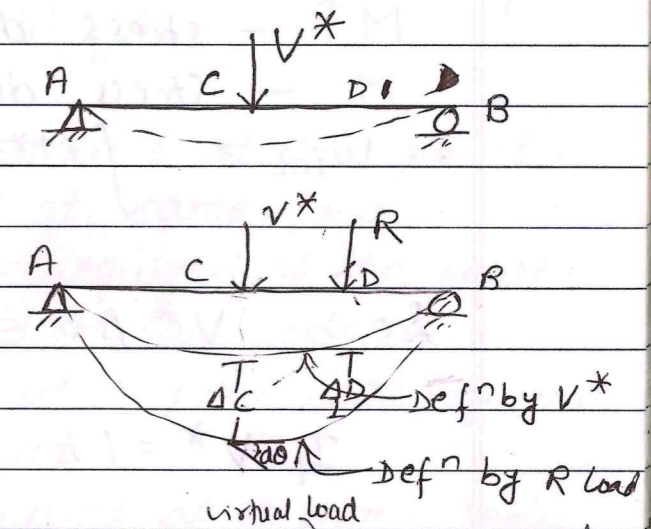 V*
A C D B
V* R
A C D B
ΔC ΔD Defⁿ by V*
dθ Defⁿ by R load
virtual load